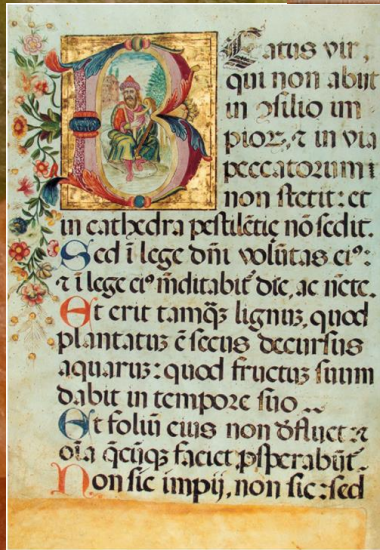 Beatus vir,
qui non abiit
in ꝯsilio im
pioꝝ, ⁊ in via
peccatorum
non stetit: et
in cathedra pestilētie nō sedit.
Sed ī lege dn̄i volūtas eiꝰ:
⁊ ī lege eiꝰ m̄ditabit̄ die, ac nc̄te.
Et erit tamqꝫ lignuꝫ, quod
plantatuꝫ ē secus decursus
aquaruꝫ: quod fructuꝫ suum
dabit in tempore suo
Et foliū eius non dſluet: ⁊
oīa qc̄ūqꝫ faciet ꝓsperabūt̄
Non sic impij, non sic: sed